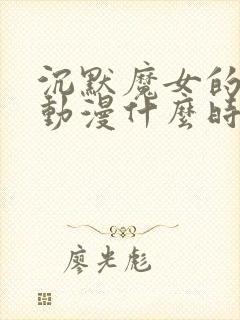 沉默魔女的
動漫什麼時
廖光彪